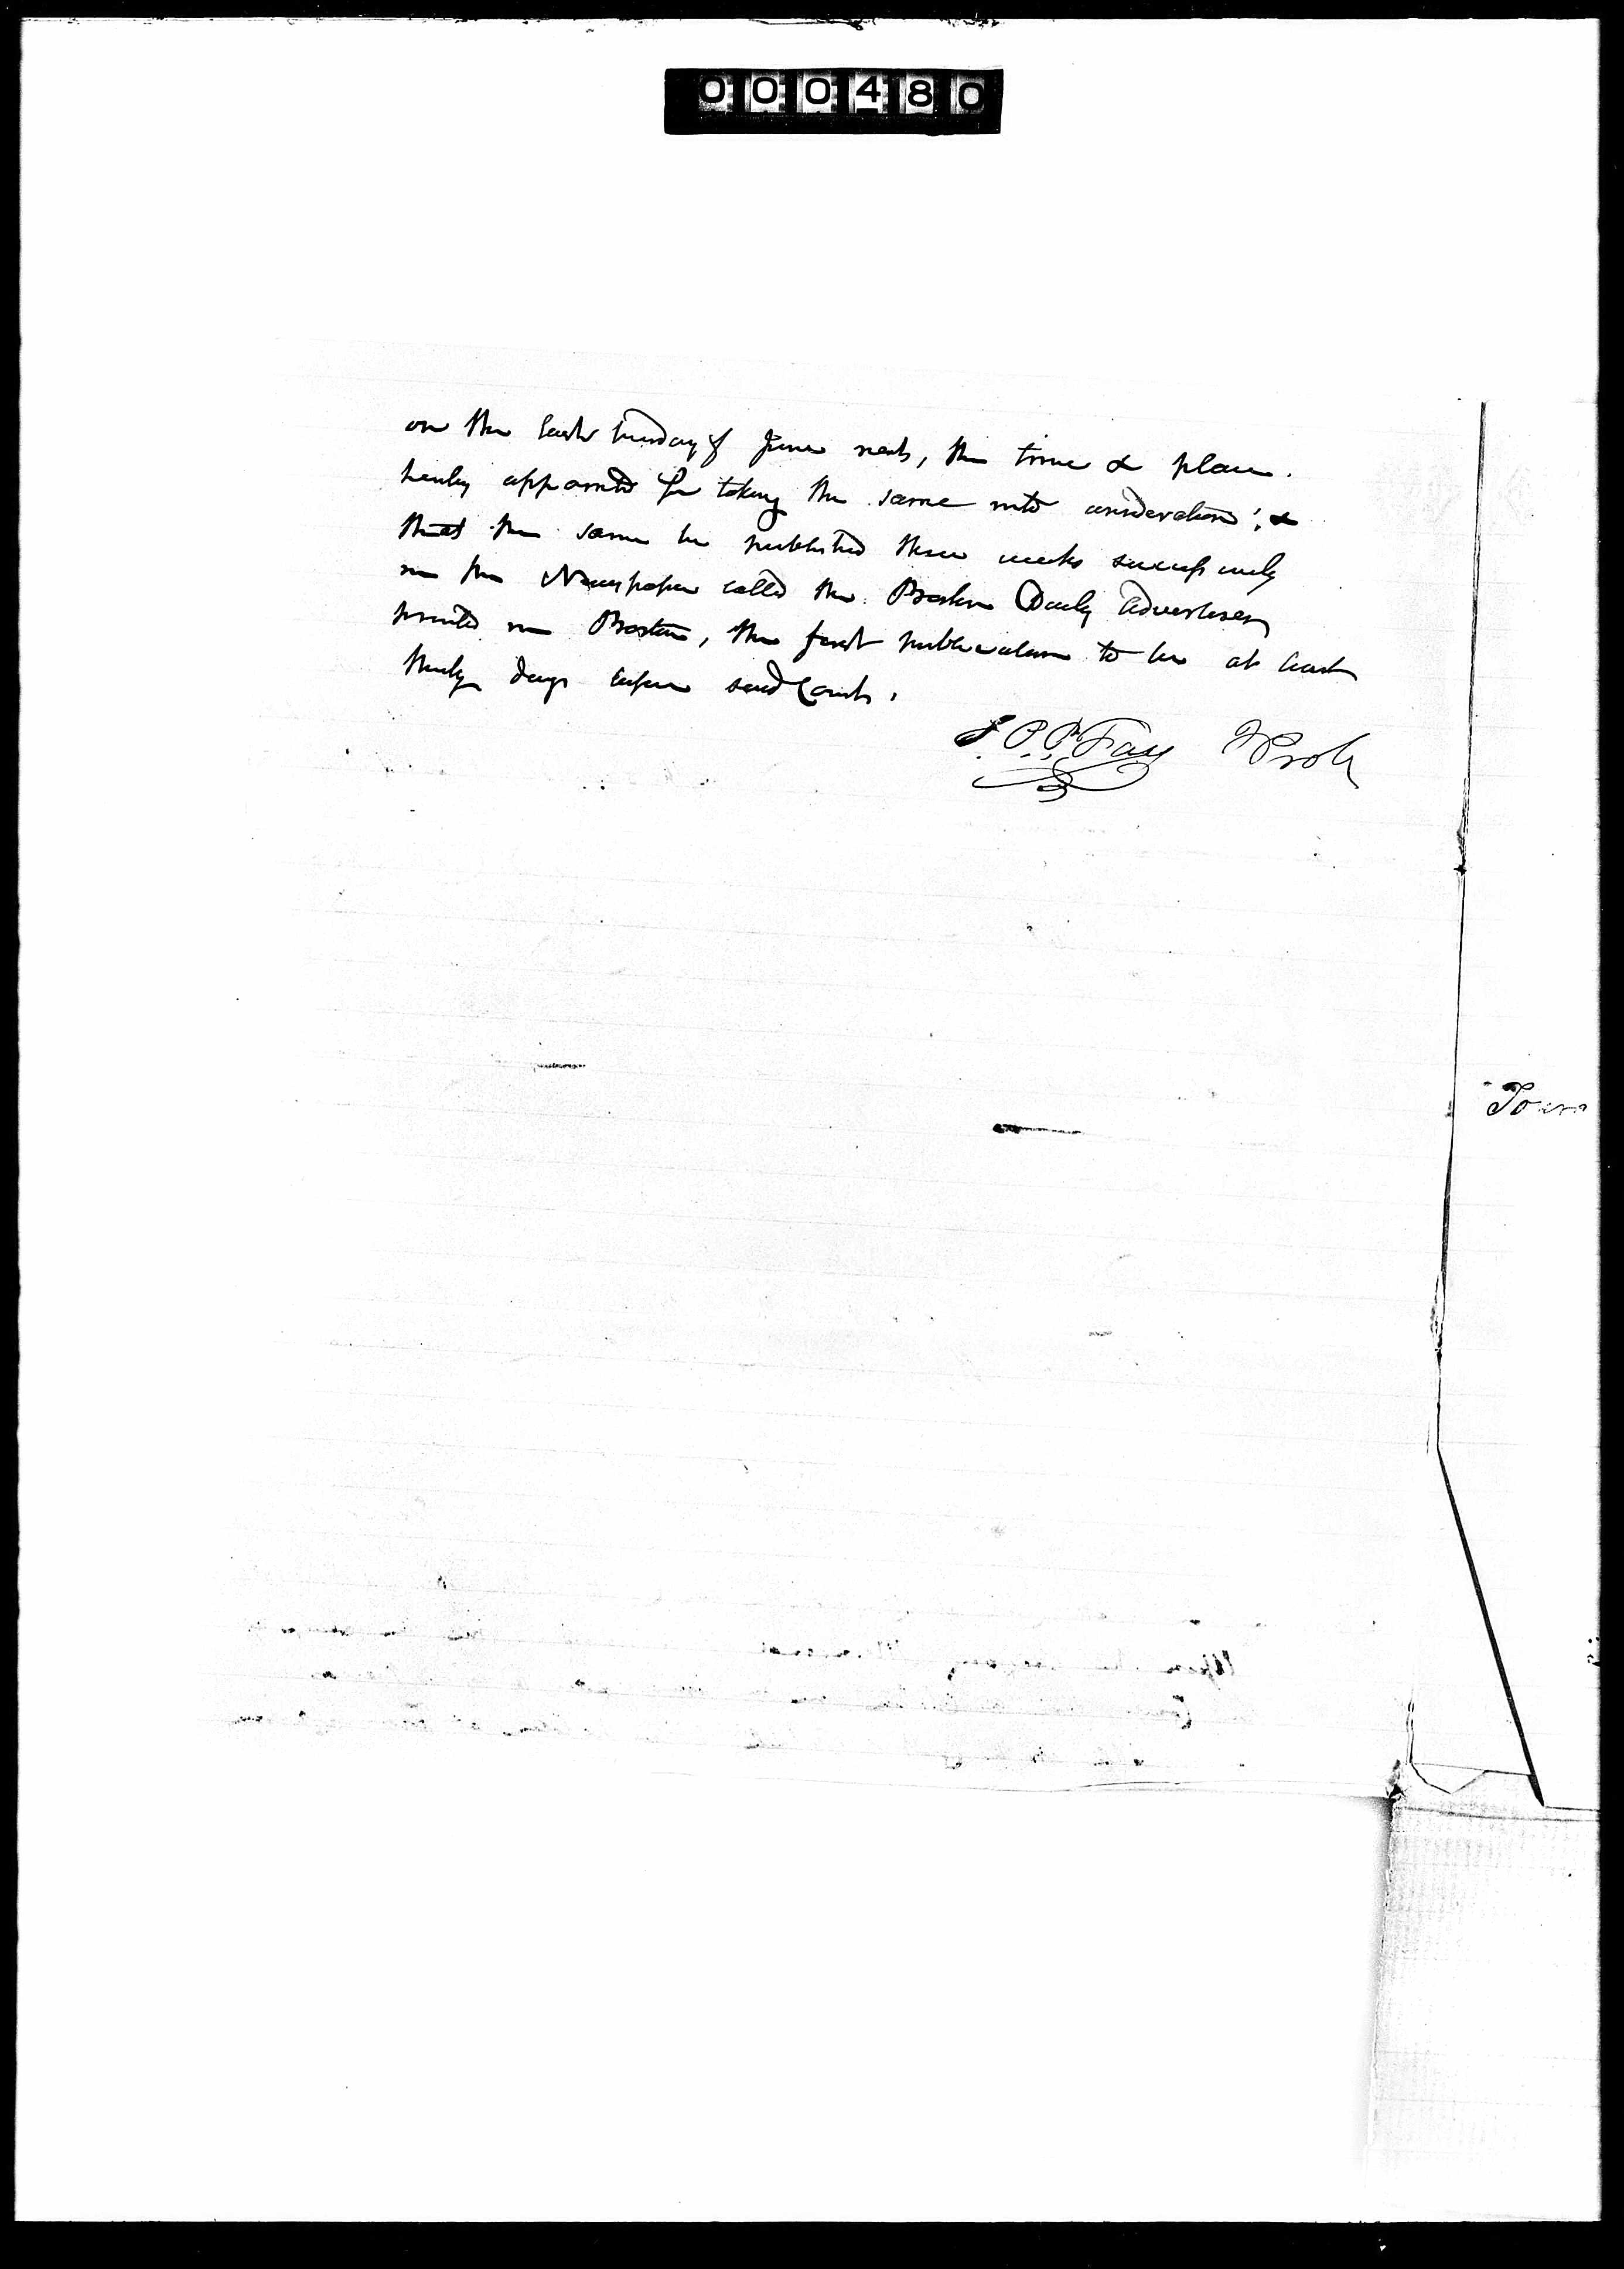 000480
on the last tuesday of June next, the time & place
hereby appointed for taking the same into consideration; &
that the same be published three weeks successively
in the Newspaper called the Boston Daily Advertiser
printed in Boston, the first publication to be at least
thirty days before said Court.
S. P. P. Fay J Prob
Town